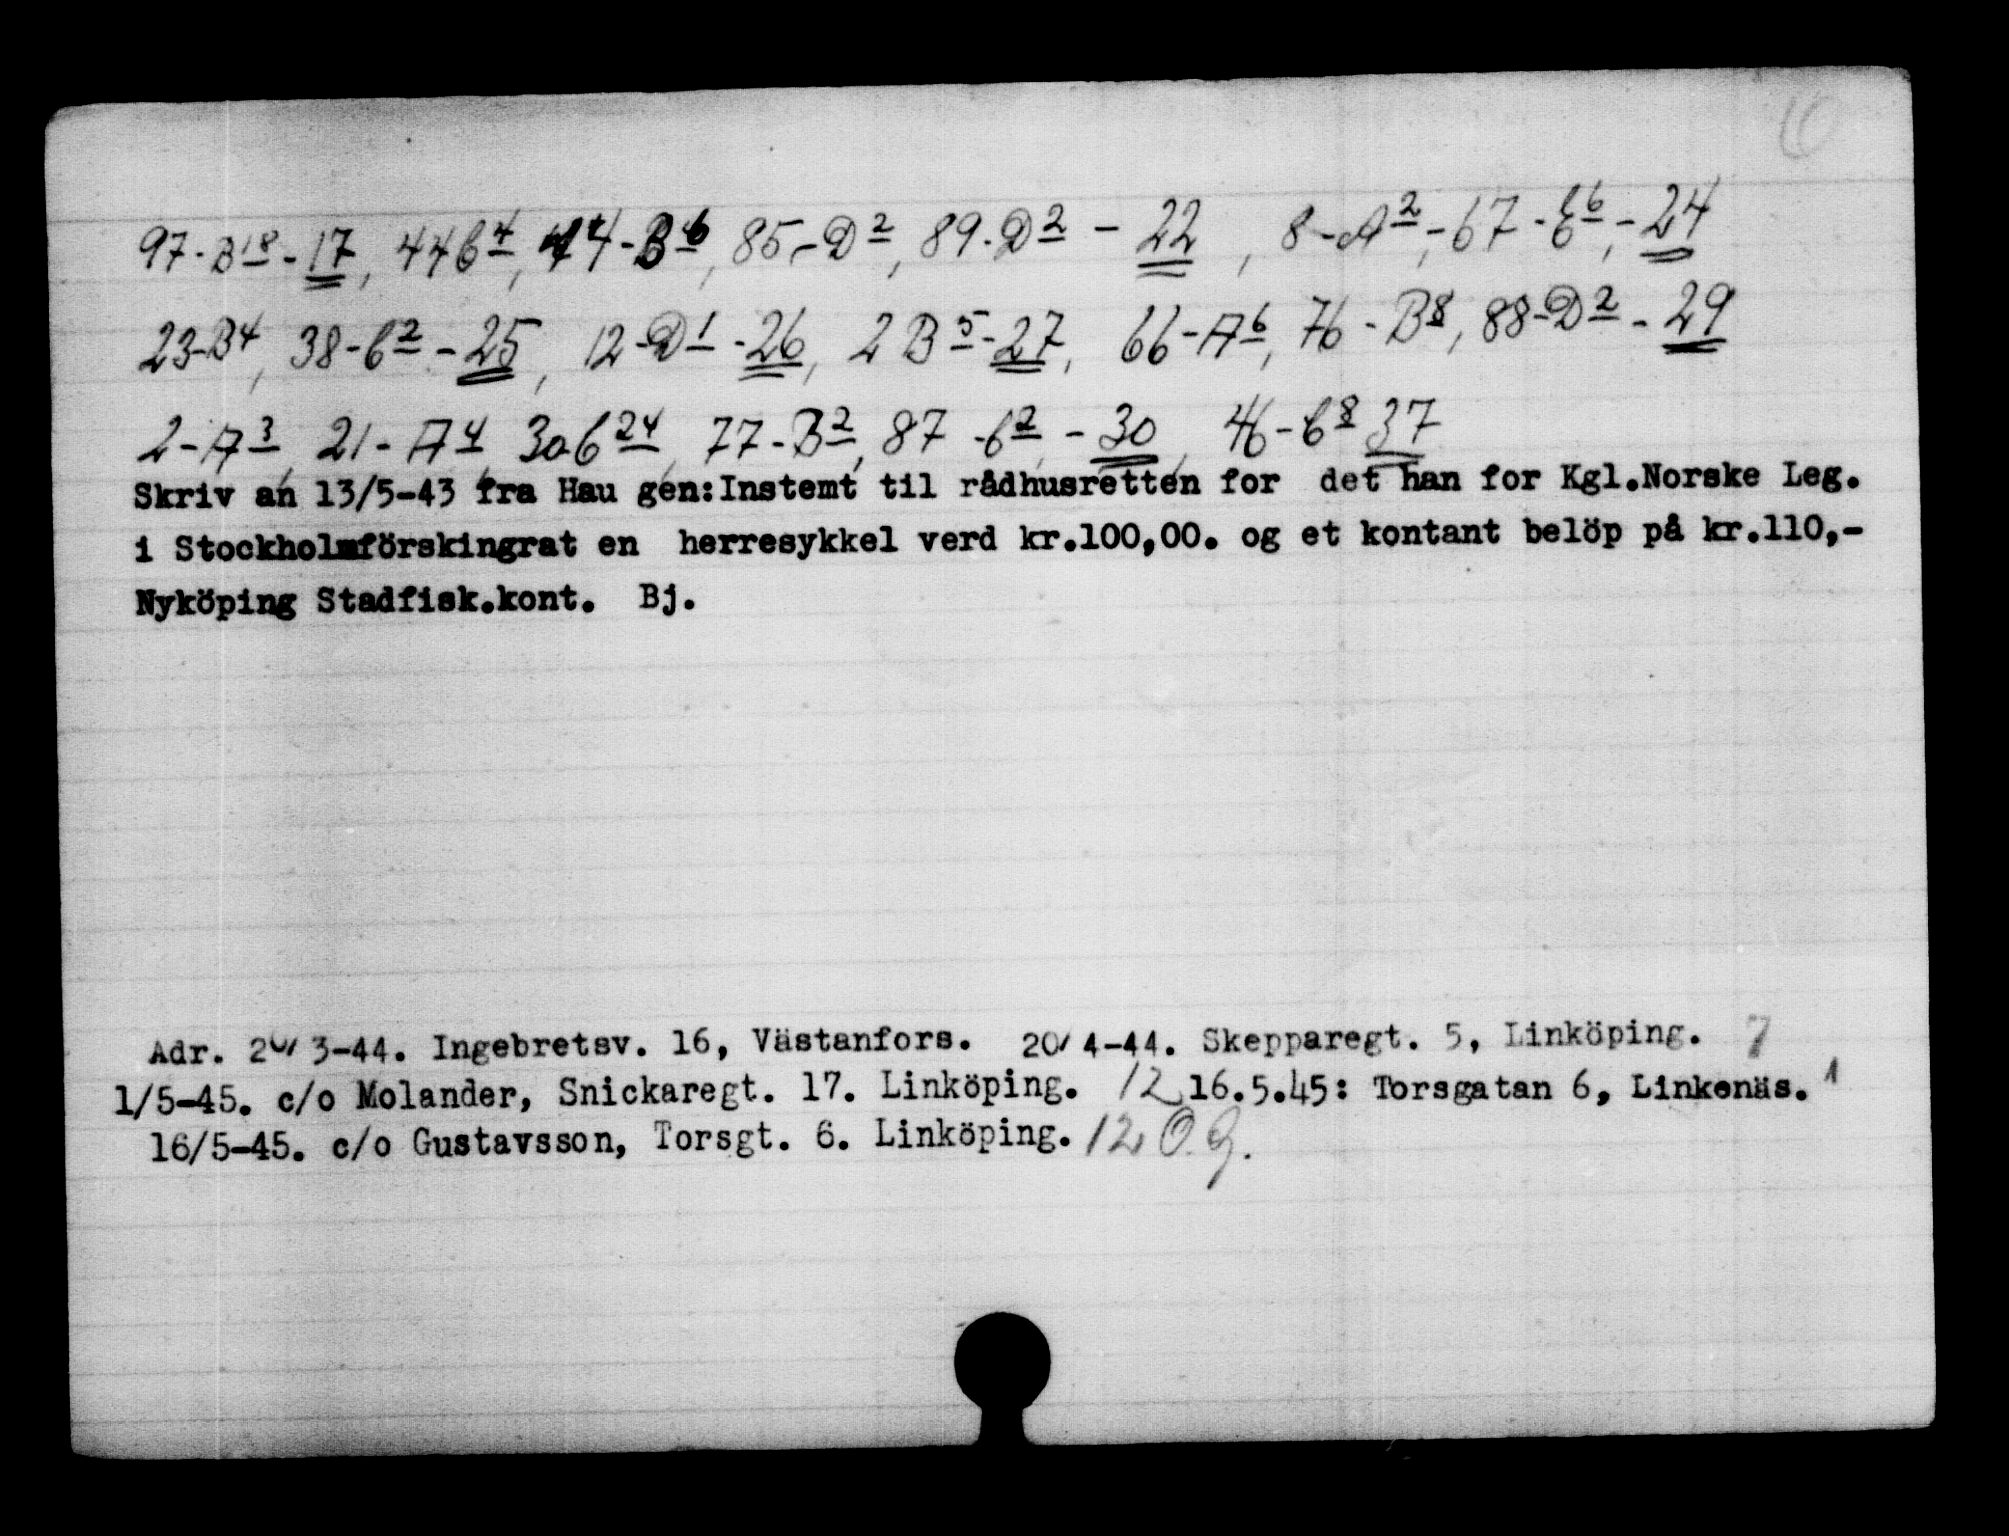 6
97-B18-17, 44b4, 44-B6, 85-D2, 89-D2 - 22, 8-A2, -67-E6, -24
23-B4, 38-b2-25, 12-D1-26, 2B5-27, 66-A6, 76-B8, 88-D2-29
2-A3, 21-A4, 30b24, 77-B2, 87-b2, -30, 46-b8 37
Skriv an 13/5-43 fra Hau gen:Instemt til rådhusretten for det han for Kgl.Norske Leg.
i Stockholmförskingrat en herresykkel verd kr.100,00. og et kontant belöp på kr.110,-
Nyköping Stadfisk.kont. Bj.
Adr. 20/ 3-44. Ingebretsv. 16, Västanfors. 20/ 4-44. Skepparegt. 5, Linköping. 7
1/5-45. c/o Molander, Snickaregt. 17. Linköping. 12 16.5.45: Torsgatan 6, Linkenäs. 1
16/5-45. c/o Gustavsson, Torsgt. 6. Linköping. 12 O.G.